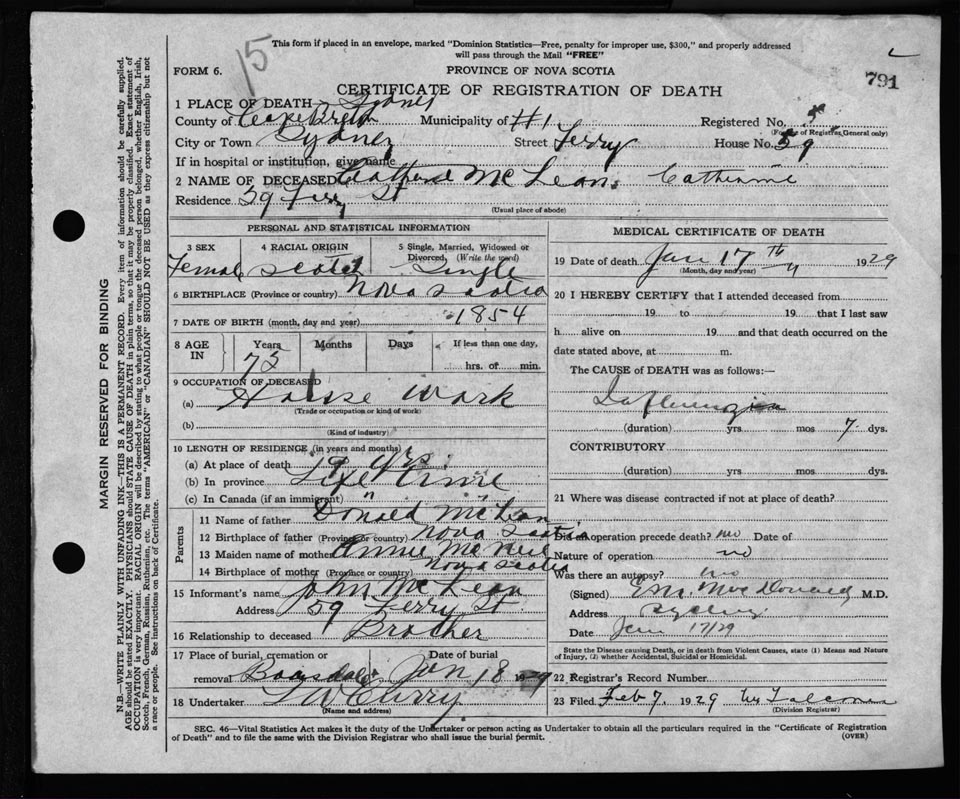 15
This form if placed in an envelope, marked "Dominion Statistics—Free, penalty for improper use, $300," and properly addressed
will pass through the Mail "FREE"
FORM 6.
PROVINCE OF NOVA SCOTIA
791
CERTIFICATE OF REGISTRATION OF DEATH
1 PLACE OF DEATH Sydney
County of Cape Breton Municipality of #1 Registered No. 5
(For use of Registrar General only)
City or Town Sydney Street Ferry House No. 59
If in hospital or institution, give name
2 NAME OF DECEASED Catherine McLean Catherine
Residence 59 Ferry St
(Usual place of abode)
PERSONAL AND STATISTICAL INFORMATION
3 SEX 4 RACIAL ORIGIN 5 Single, Married, Widowed or
Divorced, (Write the word)
Female Scotch Single
6 BIRTHPLACE (Province or country) Nova Scotia
7 DATE OF BIRTH (month, day and year) 1854
8 AGE IN Years Months Days If less than one day,
75 hrs. of min.
9 OCCUPATION OF DECEASED
(a) House Work
(Trade or occupation or kind of work)
(b)
(Kind of industry)
10 LENGTH OF RESIDENCE (in years and months)
(a) At place of death 19 yrs.
(b) In province Life time
(c) In Canada (if an immigrant) " "
Parents
11 Name of father Donald McLean
12 Birthplace of father (Province or country) Nova Scotia
13 Maiden name of mother Annie McNeil
14 Birthplace of mother (Province or country) Nova Scotia
15 Informant's name John McLean
Address 59 Ferry St
16 Relationship to deceased Brother
17 Place of burial, cremation or Date of burial
removal Jan 18 1929
18 Undertaker Curry
(Name and address)
MEDICAL CERTIFICATE OF DEATH
19 Date of death Jan 17th 1929
(Month, day and year)
20 I HEREBY CERTIFY that I attended deceased from
19 to 19 that I last saw
h alive on 19 and that death occurred on the
date stated above, at m.
The CAUSE of DEATH was as follows:—
Influenza
(duration) yrs mos 7 dys.
CONTRIBUTORY
(duration) yrs mos dys.
21 Where was disease contracted if not at place of death?
Did an operation precede death? no Date of
Nature of operation no
Was there an autopsy? no
(Signed) MacDonald M.D.
Address Sydney
Date Jan 17/29
State the Disease causing Death, or in death from Violent Causes, state (1) Means and Nature
of Injury, (2) whether Accidental, Suicidal or Homicidal.
22 Registrar's Record Number
23 Filed Feb 7, 1929
(Division Registrar)
SEC. 46—Vital Statistics Act makes it the duty of the Undertaker or person acting as Undertaker to obtain all the particulars required in the "Certificate of Registration
of Death" and to file the same with the Division Registrar who shall issue the burial permit.
(OVER)
MARGIN RESERVED FOR BINDING
N.B.—WRITE PLAINLY WITH UNFADING INK—THIS IS A PERMANENT RECORD. Every item of information should be carefully supplied.
AGE should be stated EXACTLY. PHYSICIANS should STATE CAUSE OF DEATH in plain terms, so that it may be properly classified. Exact statement of
OCCUPATION is very important. RACIAL ORIGIN will be described by stating to what people or tongue the deceased person belonged, whether English, Irish,
Scotch, French, German, Russian, Ruthenian, etc. The terms "AMERICAN" or "CANADIAN" SHOULD NOT BE USED as they express citizenship but not
a race or people. See instructions on back of Certificate.